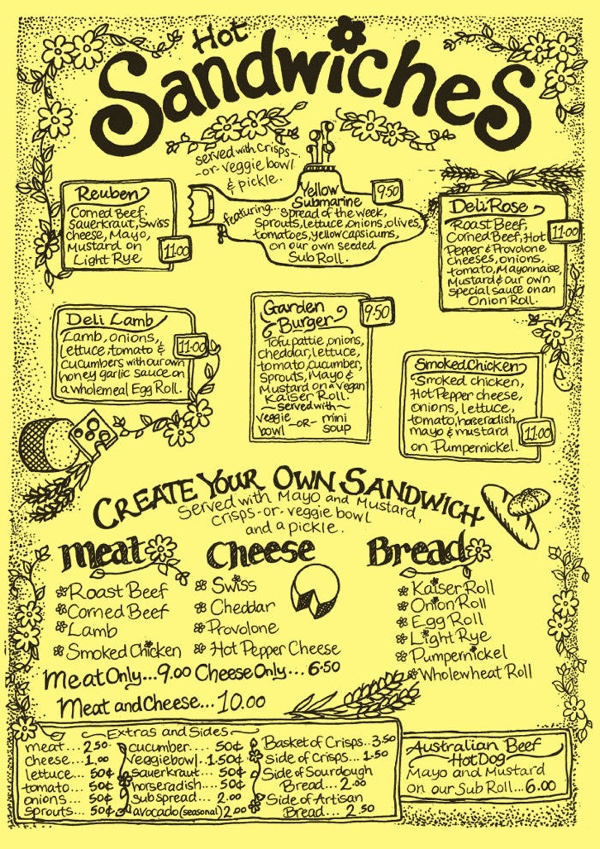 Hot
Sandwiches
served with crisps-
-or-veggie bowl
& pickle.
Reuben
Corned Beef,
Sauerkraut, Swiss
cheese, Mayo,
Mustard on
Light Rye
11.00
Yellow
Submarine
9.50
featuring...spread of the week,
Sprouts, lettuce, onions, olives,
tomatoes, yellow capsicums,
on our own seeded
Sub Roll.
Deli Rose
Roast Beef,
Corned Beef, Hot
Pepper & Provolone
cheeses, onions,
tomato, Mayonnaise,
Mustard & our own
special sauce on an
Onion Roll.
11.00
Deli Lamb
Lamb, onions,
lettuce, tomato &
cucumbers with our own
honey garlic sauce on
a wholemeal Egg Roll.
11.00
Garden
Burger
9.50
Tofu pattie, onions,
cheddar, lettuce,
tomato, cucumber,
Sprouts, Mayo &
Mustard on a vegan
Kaiser Roll.
~served with~
veggie bowl -or- mini soup
Smoked Chicken
Smoked chicken,
Hot Pepper cheese,
onions, lettuce,
tomato, horseradish,
mayo & mustard
on Pumpernickel.
11.00
Create Your Own Sandwich
Served with Mayo and Mustard,
crisps-or-veggie bowl
and a pickle.
Meat
Roast Beef
Corned Beef
Lamb
Smoked Chicken
Cheese
Swiss
Cheddar
Provolone
Hot Pepper Cheese
Bread
Kaiser Roll
Onion Roll
Egg Roll
Light Rye
Pumpernickel
Wholewheat Roll
Meat Only...9.00 Cheese Only...6.50
Meat and cheese...10.00
Extras and Sides
meat...2.50
cheese...1.00
lettuce...50¢
tomato...50¢
onions...50¢
sprouts...50¢
cucumber...50¢
veggie bowl.1.50¢
sauerkraut...50¢
horseradish...50¢
sub spread..2.00
avocado (seasonal) 2.00
Basket of Crisps..3.50
side of Crisps...1.50
Side of Sourdough
Bread...2.00
Side of Artisan
Bread...2.50
Australian Beef
Hot Dog
Mayo and Mustard
on our Sub Roll...6.00